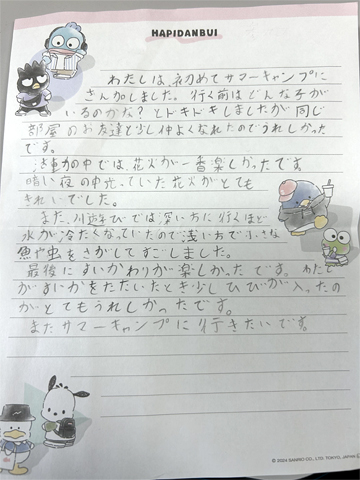 HAPIDANBUI
わたしは、初めてサマーキャンプに
さんかしました。行く前はどんな子が
いるのかな？とドキドキしましたが同じ
部屋のお友達と少し仲よくなれたのでうれしかった
です。
活動の中では、花火が一番楽しかったです
暗い夜の中光っていた花火がとても
きれいでした。
また、川遊びでは深い方に行くほど
水が冷たくなっていたので浅い方で小さな
魚や虫をさがしてすごしました。
最後にすいかわりが楽しかったです。わたし
がすいかをたたいたとき少しひびが入ったの
がとてもうれしかったです。
またサマーキャンプに行きたいです。
© 2024 SANRIO CO., LTD. TOKYO, JAPAN